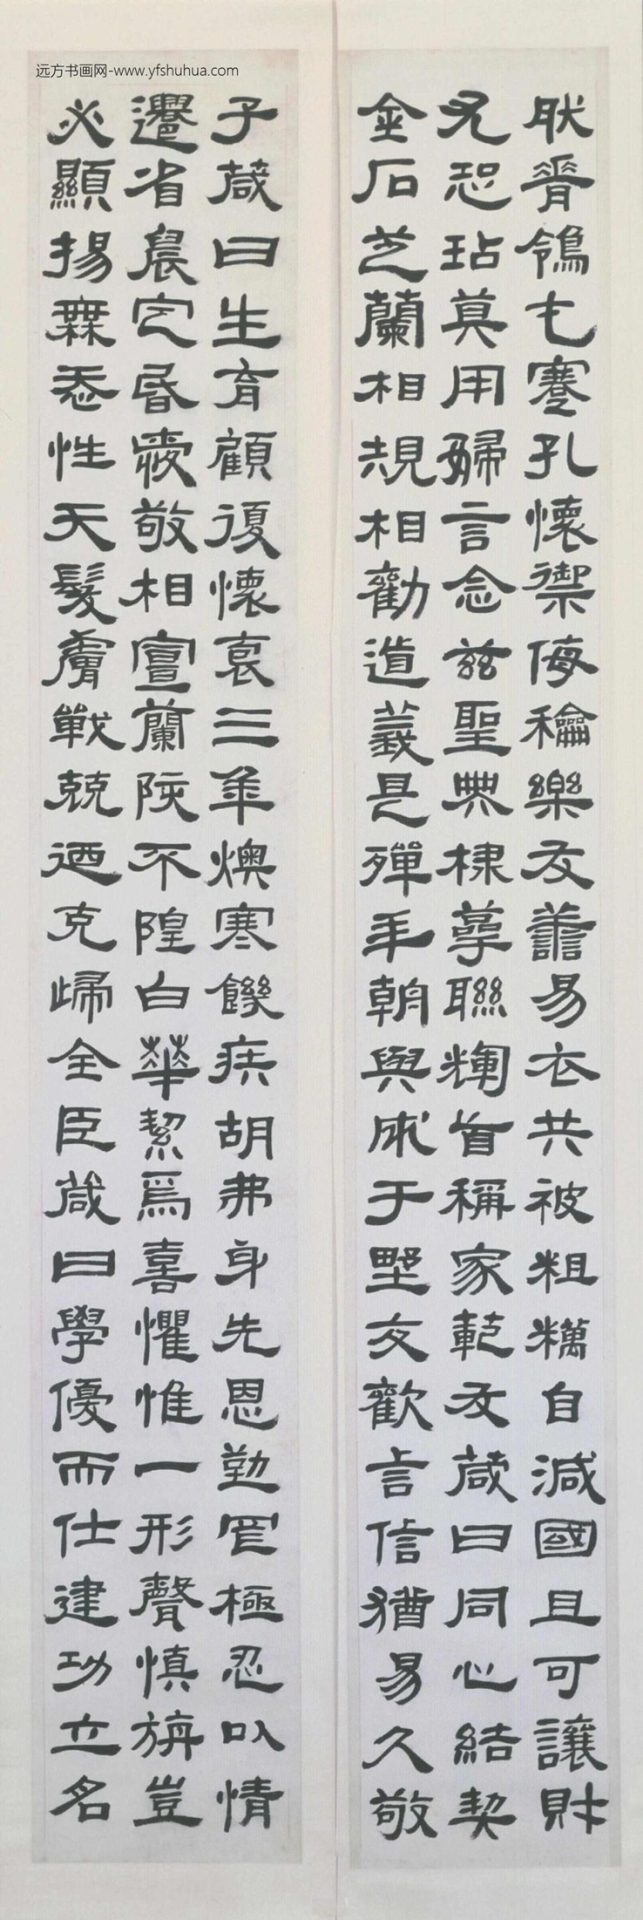 脊鴒蹇孔懷禦侮龢樂友譱易衣共被粗糲自減國且可讓財
玷莫用婦言念兹聖典棣萼聯輝首稱家範友箴曰同心結契
金石芝蘭相規相勸道義是殫朝與于野友歡言信猶易久敬
子箴曰生育顧復懷哀三年燠寒饑疾胡弗身先恩勤罔極忍以情
遷省晨定昏愛敬相宣蘭陔不隍白華絜焉喜懼惟一形聲慎旃豈
必顯揚無忝性天髮膚戰兢迺克歸全臣箴曰學優而仕建功立名
远方书画网-www.yfshuhua.com